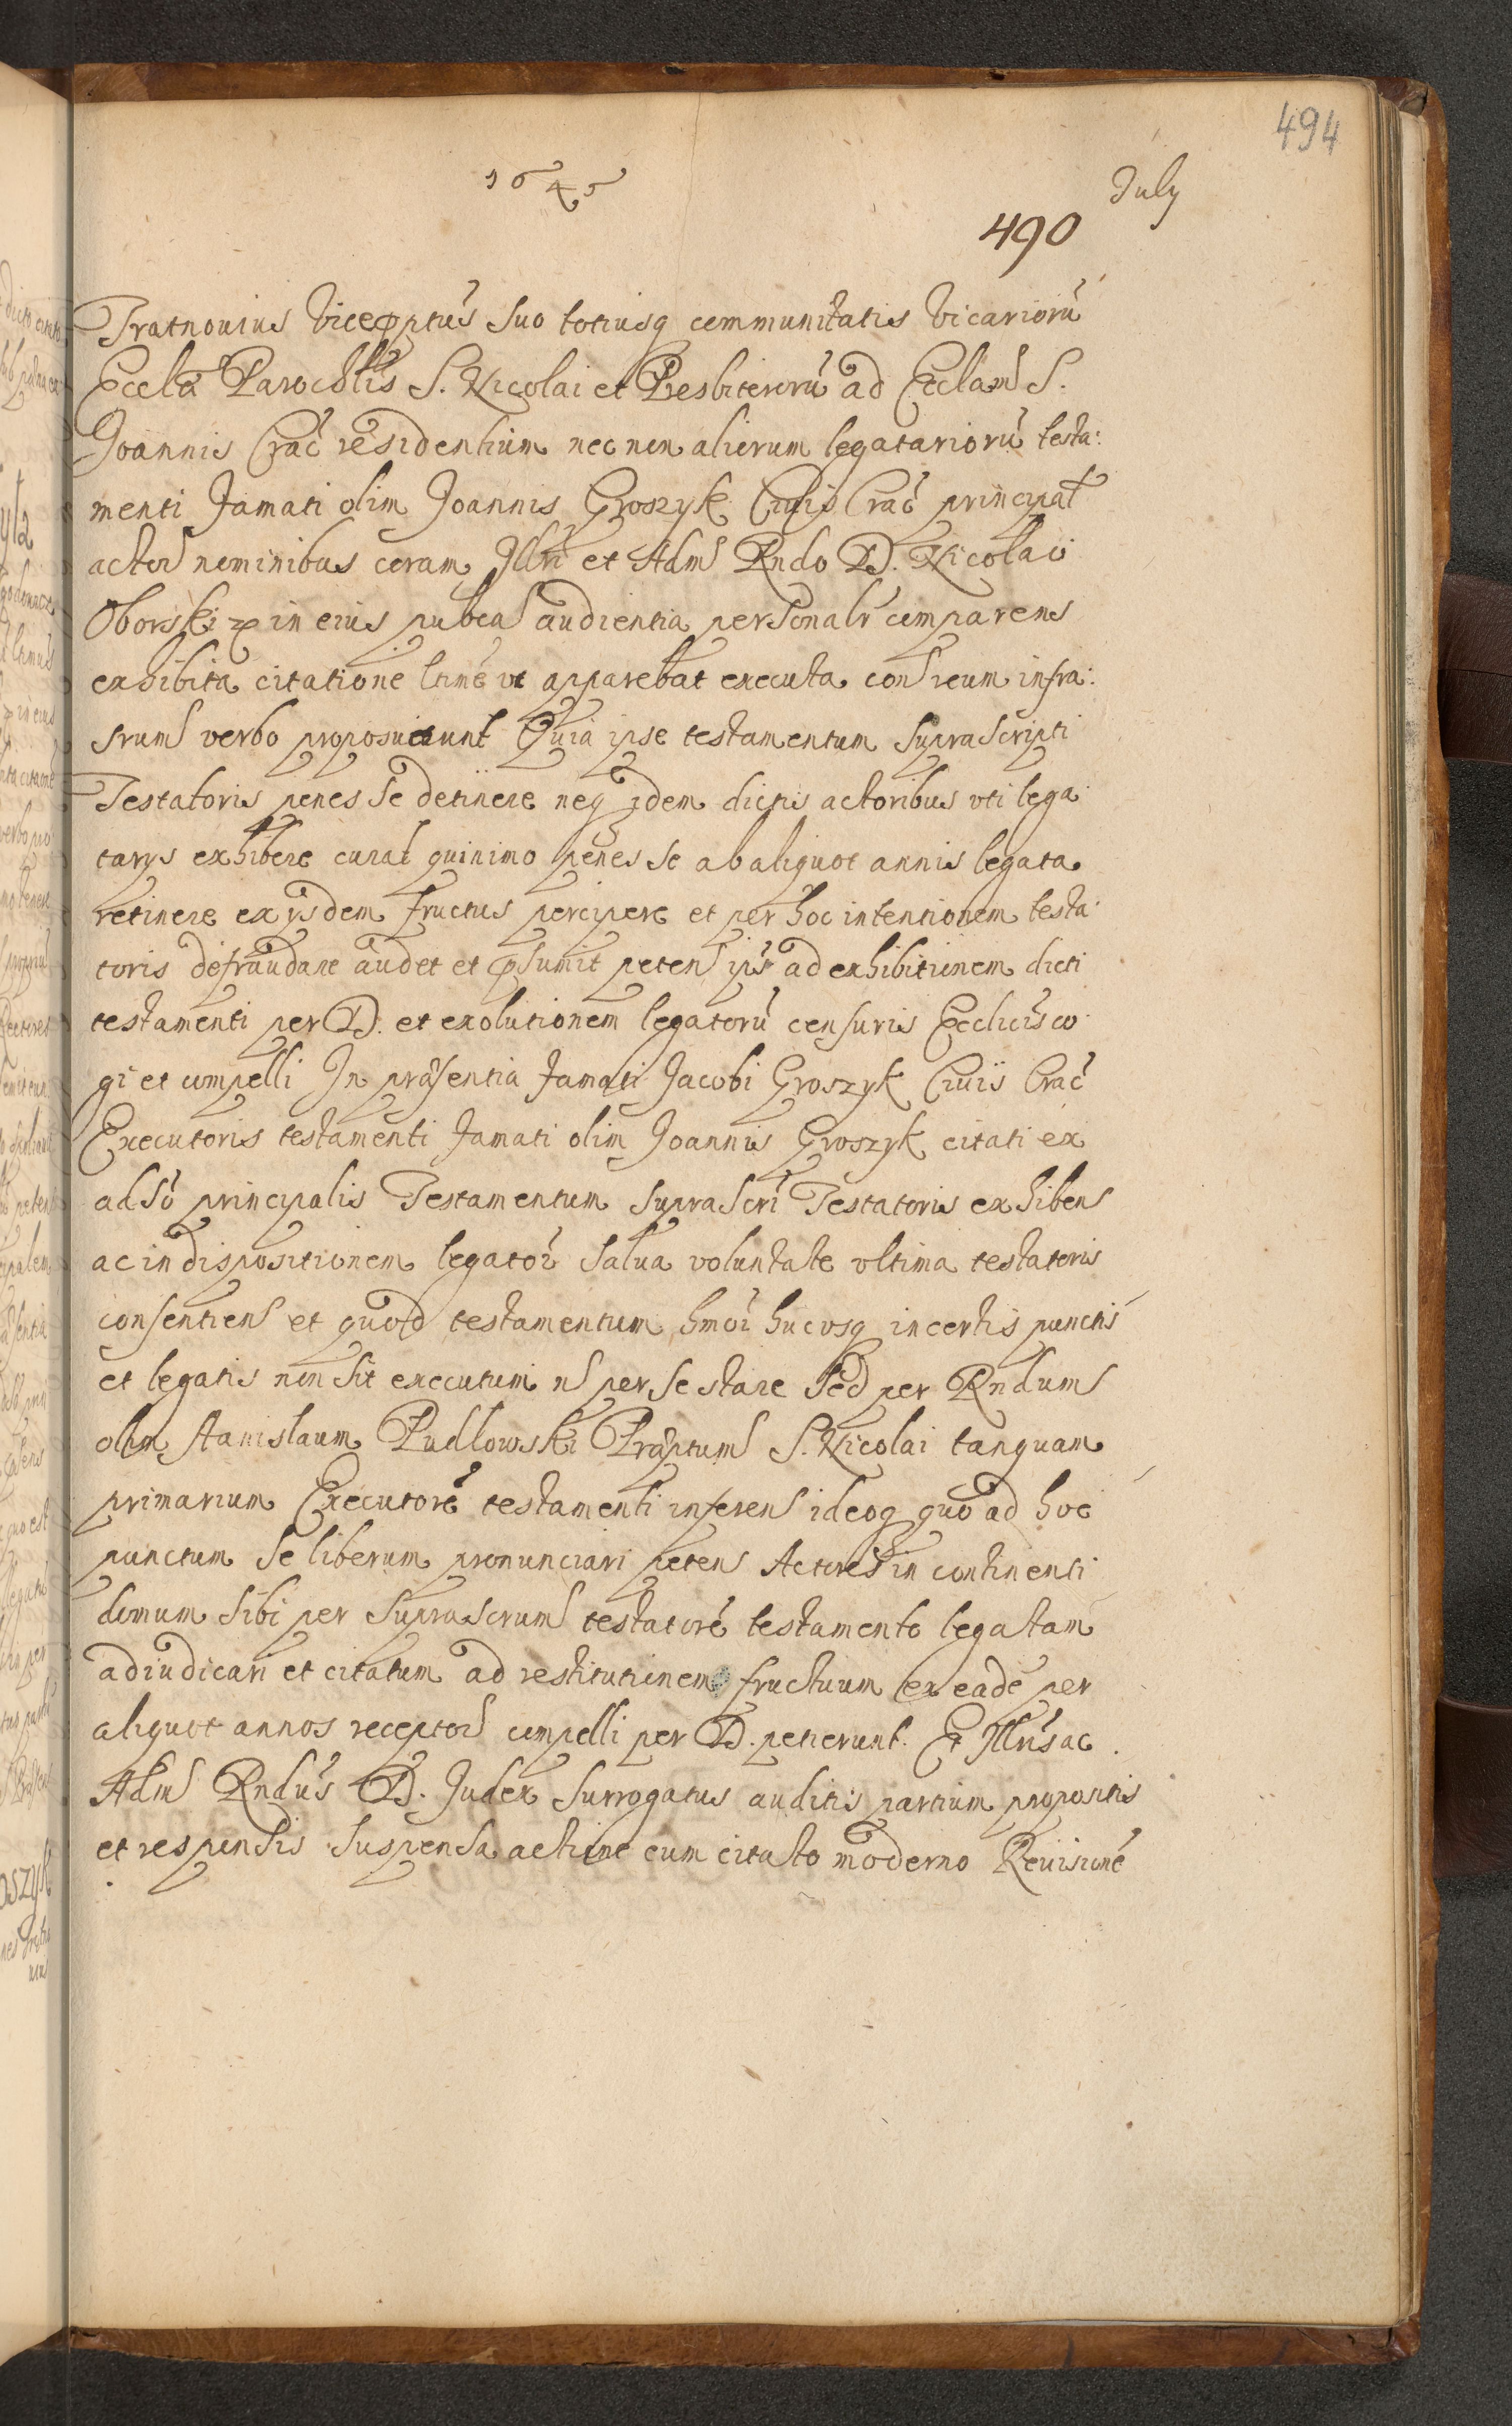 494
1645
July
490
Tratnouius Viceꝓptus suo totiusq communitatis Vicariorũ
Eccla Parochlis S. Nicolai et Presbiterorũ ad Ecclam S.
Joannis Crac residentium nec non aliorum legatariorũ testa:
menti Famati olim Joannis Groszyk Ciuis Crac principal
actor nominibus coram Illri et Adm Rndo D. Nicolao
Oborski in eius pubca audientia personalr comparens
exhibita citatione ltime vt apparebat executa con reum infra:
srum verbo proposuerunt Quia ipse testamentum suprascripti
Testatoris penes se detinere neq idem dictis actoribus vti lega
tarys exhibere curat quinimo penes se ab aliquot annis legata
retinere ex ysdem fructus percipere et per hoc intentionem testa:
toris defraudare audet et ꝓsumit peten ips ad exhibitionem dicti
testamenti per D. et exolutionem legatorũ censuris Ecclicis co
gi et compelli In præsentia Famati Jacobi Groszyk Ciuis Crac
Executoris testamenti Famati olim Joannis Groszyk citati ex
adso principalis Testamentum suprascri Testatoris exhiben
ac in dispositionem legator salua voluntate vltima testatoris
consentien et quod testamentum hmoi hucusq in certis punctis
et legatis non sit executum n per se stare sed per Rndum
olim Stanislaum Pudlowski Præptum S. Nicolai tanquam
primarium Executorẽ testamenti inferen ideoq quo ad hoc
punctum se liberum pronunciari peten Actores in continenti
domum sibi per suprascrum testatorẽ testamento legatam
adiudicari et citatum ad restitutionem fructuum ex eadẽ per
aliquot annos receptor compelli per D. petierunt. Et Illris ac
Adm Rndus D. Judex Surrogatus auditis partium propositis
et responsis suspensa actione cum citato moderno Reuisionẽ